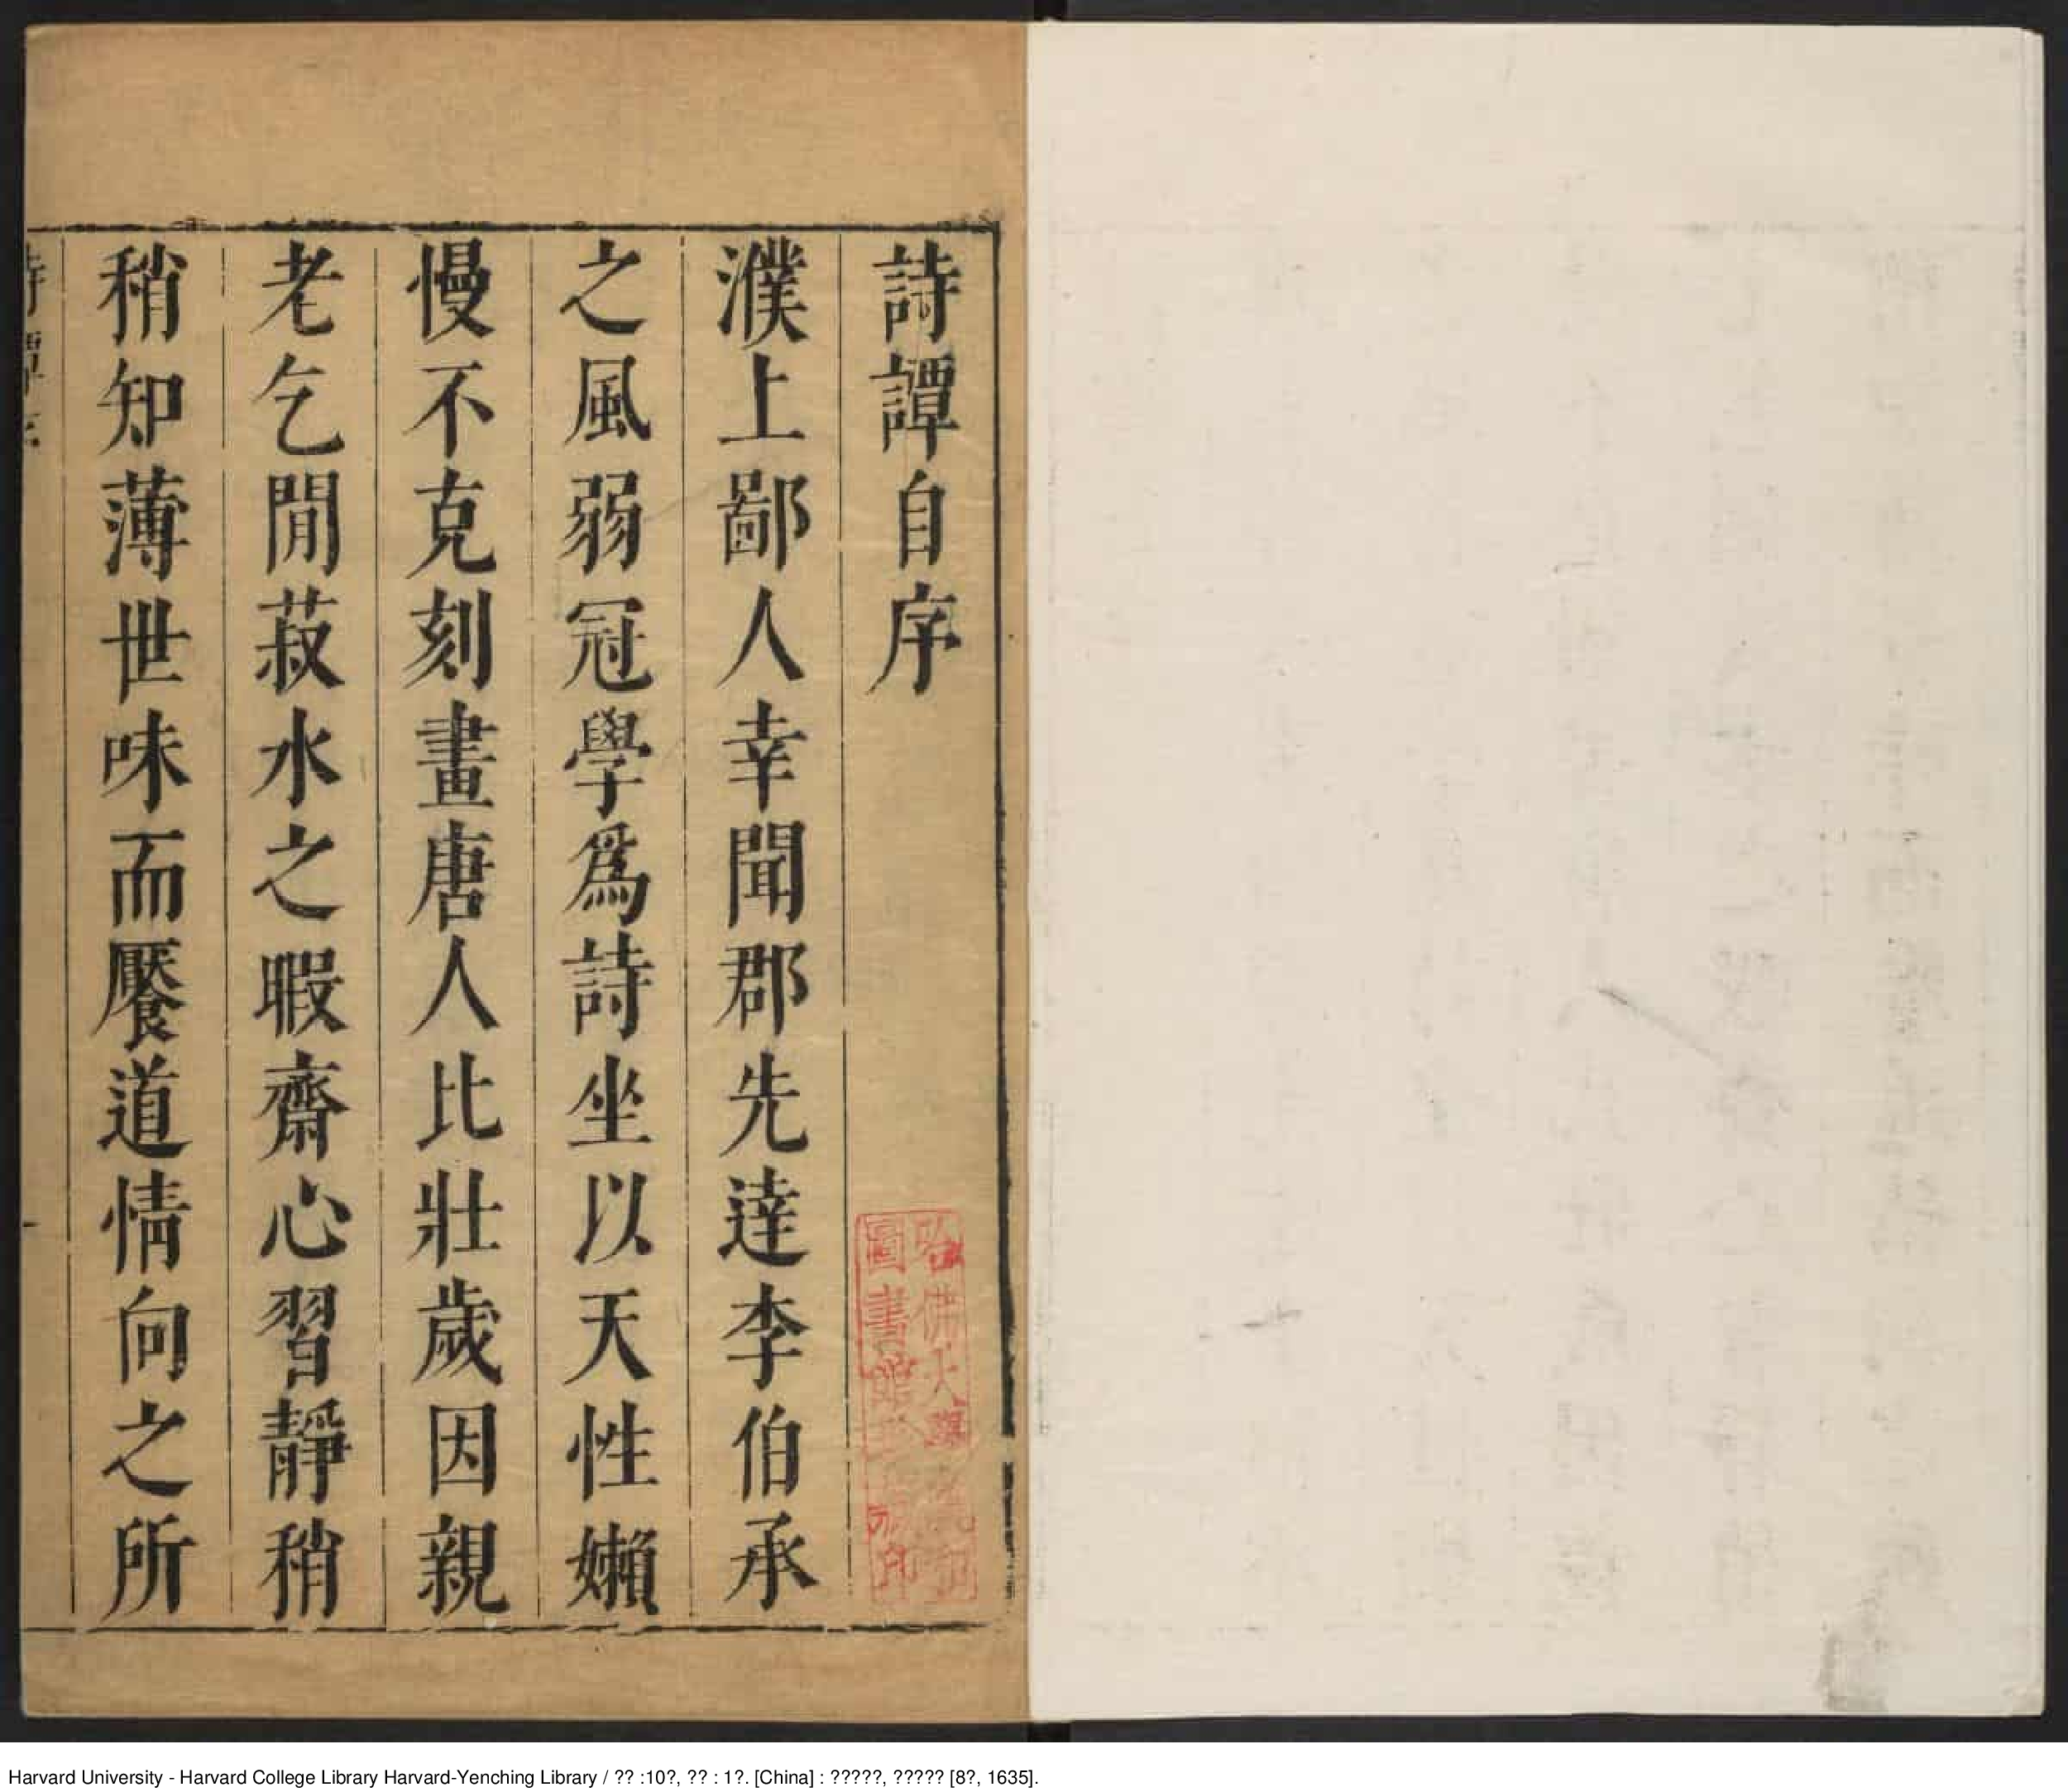 詩譚自序
濮上鄙人幸聞郡先達李伯承
之風弱冠學爲詩坐以天性嬾
慢不克刻畫唐人比壯歲因親
老乞閒菽水之暇齋心習靜稍
稍知薄世味而饜道情向之所
詩譚序
一
哈佛大學
圖書館
印
Harvard University - Harvard College Library Harvard-Yenching Library / ?? :10?, ?? : 1?. [China] : ?????, ????? [8?, 1635].